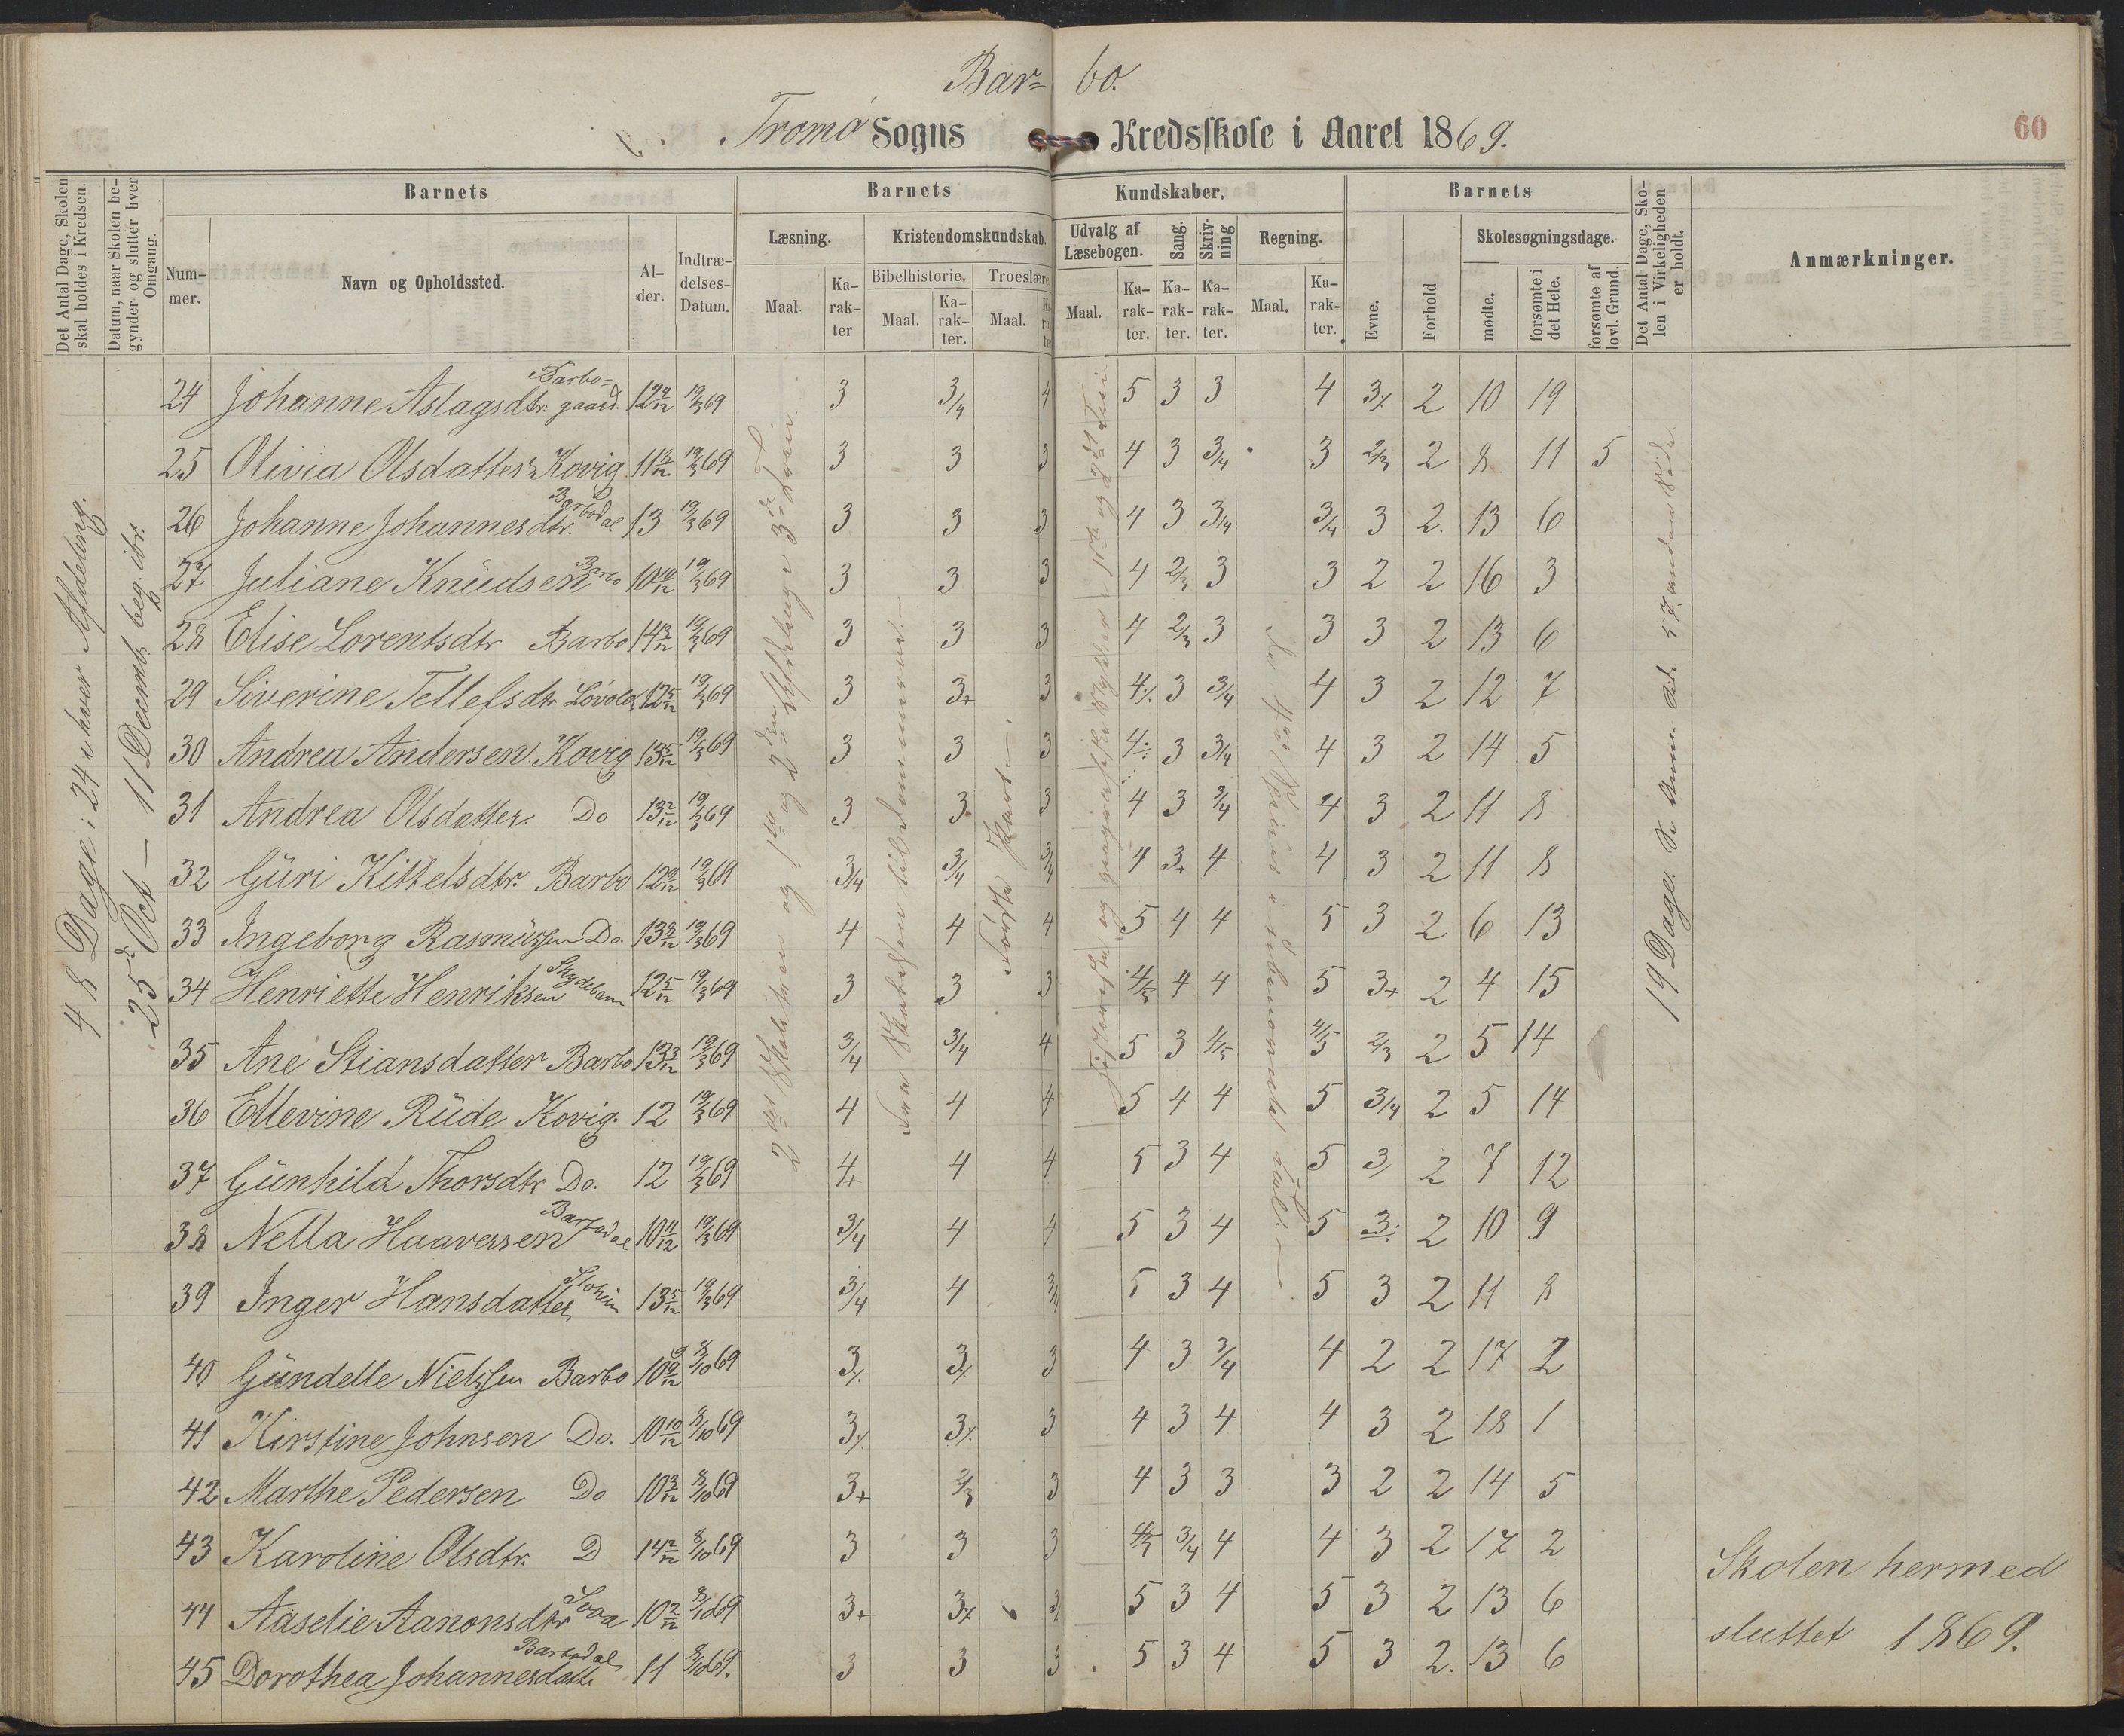 Bar= bo.
Tromø Sogns Kredsskole i Aaret 1869.
60
Det Antal Dage, Skolen skal holdes i Kredsen.
Datum, naar Skolen begynder og slutter hver Omgang.
Barnets
Nummer.
Navn og Opholdssted.
Alder.
Indtrædelses-Datum.
Barnets Kundskaber.
Læsning.
Maal.
Karakter
Kristendomskundskab.
Bibelhistorie.
Maal.
Karakter.
Troeslære
Maal.
Udvalg af Læsebogen.
Maal.
Karakter.
Sang.
Karakter.
Skrivning
Karakter.
Regning.
Maal.
Karakter.
Barnets
Evne.
Forhold
Skolesøgningsdage.
mødte.
forsømte i det Hele.
forsømte af lovl. Grund.
Det Antal Dage, Skolen i Virkeligheden er holdt.
Anmærkninger.
48 Dage i 24 hver Afdeling.
25d Oct — 11 Decemb. beg. ibr.
Fra Skabelsen til Dommerne.—
Første Part —
19 Dage.
24 Johanne Aslagsdtr. Barbo=gaard. 12 4/12 19/3 69 3 3/4 4 5 3 3 4 3% 2 10 19
25 Olivia Olsdatter Kovig 11 19/3 69 3 3 3 4 3 3/4 3 2/3 2 8 11 5
26 Johanne Johannesdtr. Barbodal 13 19/3 69 3 3 3 4 3 3/4 3/4 3 2. 13 6
27 Juliane Knudsen Barbo 10 19/3 69 3 3 3 4 2/3 3 3 2 2 16 3
28 Elise Lorentsdtr Barbo 14 19/3 69 3 3 3 4 2/3 3 3 3 2 13 6
29 Siverine Tellefsdtr 12 5/12 19/3 69 3 3+ 3 4% 3 3/4 4 3 2 12 7
30 Andrea Andersen Kovig 13 5/12 19/3 69 3 3 3 4÷ 3 3/4 4 3 2 14 5
31 Andrea Olsdatter. Do 13 2/12 19/3 69 3 3 3 4 3 3/4 4 3 2 11 8
32 Guri Kittelsdtr. Barbo 12 19/3 69 3/4 3/4 3/4 4 3+ 4 4 3 2 11 8
33 Ingeborg Rasmussen Do. 13 19/3 69 4 4 4 5 4 4 5 3 2 6 13
34 Henriette Henriksen Skydebane 12 5/12 19/3 69 3 3 3 4/5 4 4 5 3+ 2 4 15
35 Ane Stiansdatter Barbo 13 19/3 69 3/4 3/4 4 5 3 4/5 4/5 2/3 2 5 14
36 Ellevine Rude Kovig. 12 19/3 69 4 4 4 5 4 4 5 3/4 2 5 14
37 Gunhild Thorsdtr Do. 12 19/3 69 4+ 4 4 5 3 4 5 3 2 7 12
38 Nella Haaversen Barbodal 10 11/12 19/3 69 3/4 4 4 5 3 4 5 3 2 10 9
39 Inger Hansdatter 13 5/12 19/3 69 3/4 4 3/4 5 3 4 5 3 2 11 8
40 Gundelle Nielssen Barbo 10 9/12 8/10 69 3% 3% 3 4 3 3/4 4 2 2 17 2
41 Kirstine Johnsen Do. 10 10/12 8/10 69 3% 3% 3 4 3 4 4 3 2 18 1
42 Marthe Pedersen Do 10 8/10 69 3+ 2/3 3 4 3 3 3 2 2 14 5
43 Karoline Olsdtr. D 14 2/12 8/10 69 3 3 3 4/5 3/4 4 4 3 2 17 2
44 Aaselie Aanonsdtr 10 2/12 8/10 69 3+ 3% 3 5 3 4 5 3 2 13 6
45 Dorothea Johannesdatter Barbodal 11 8/10 69. 3 3 3 5 3 4 5 3 2. 13 6
Skolen hermed
sluttet 1869.